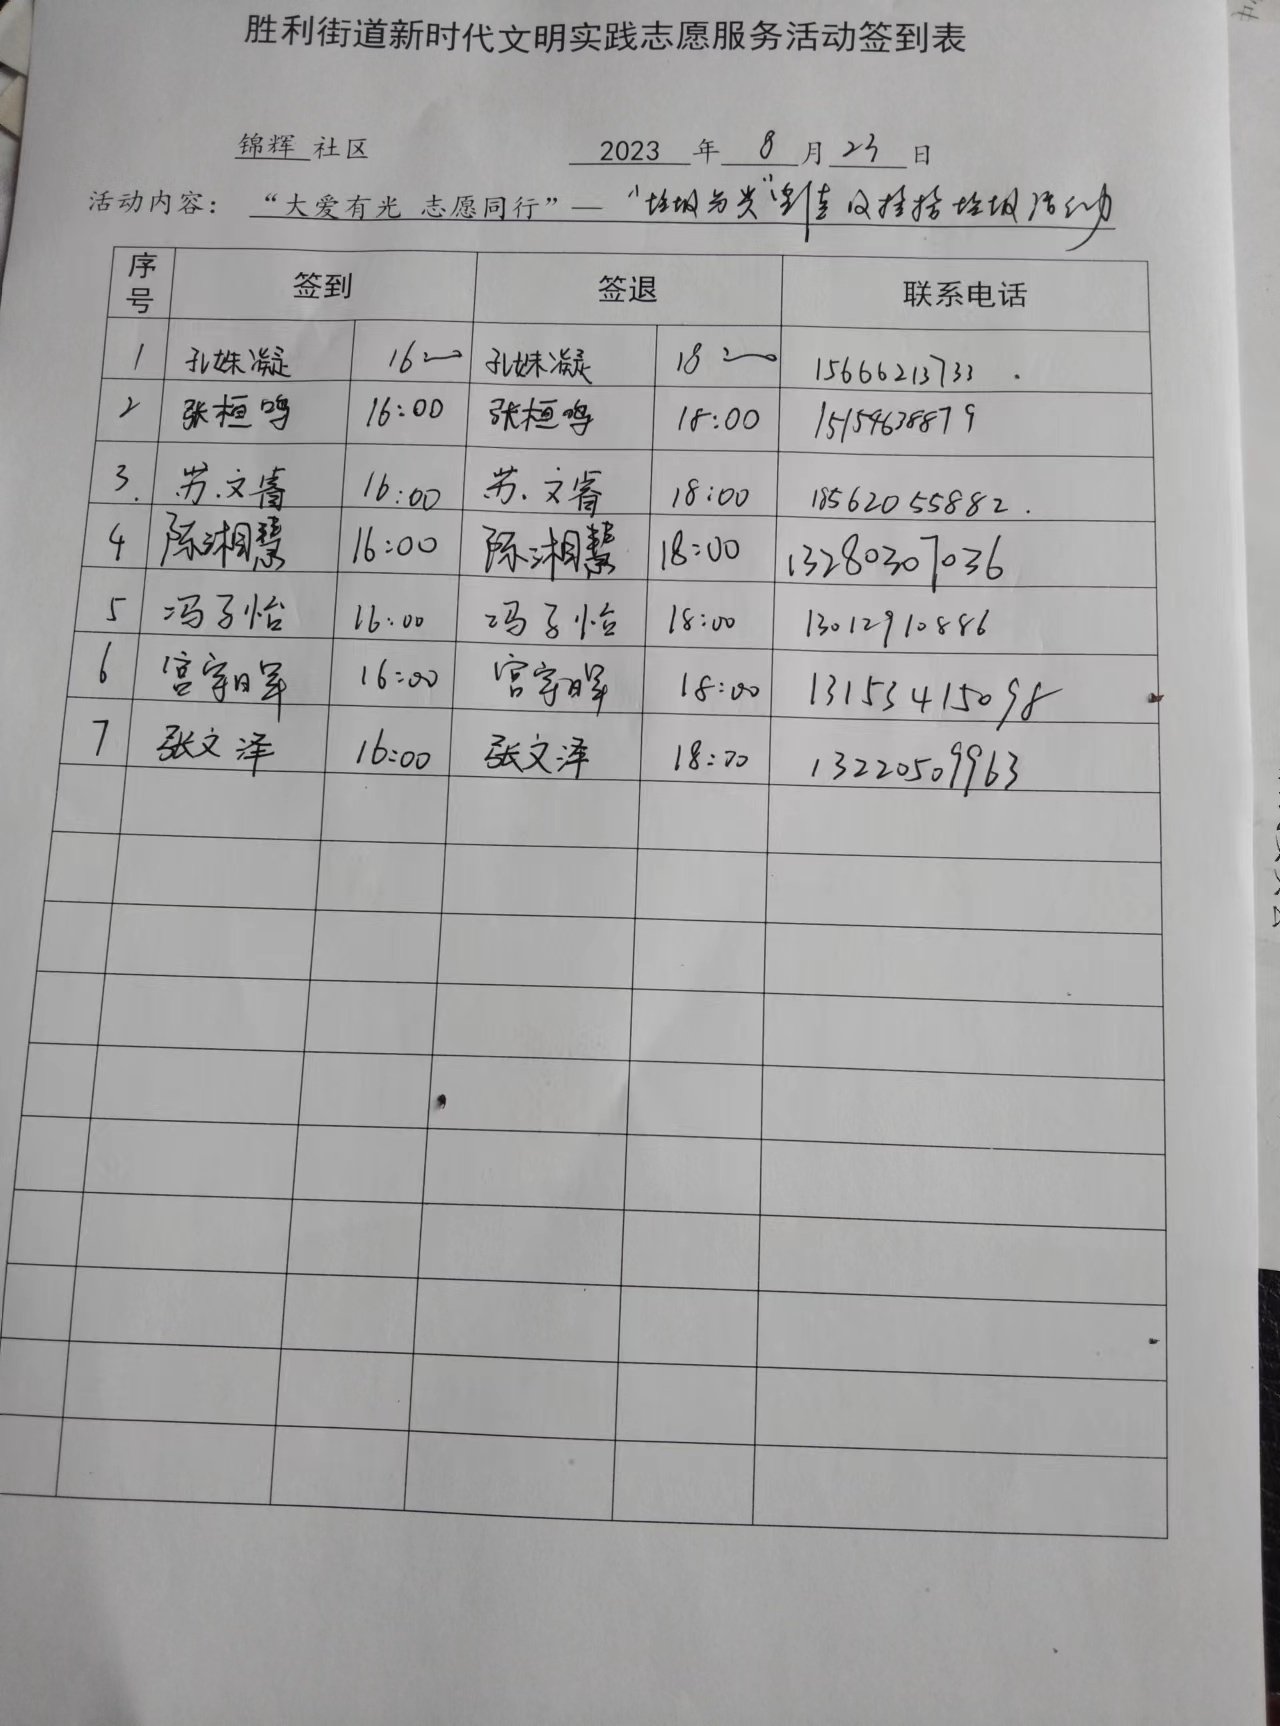 胜利街道新时代文明实践志愿服务活动签到表
锦辉 社区 2023 年 8 月 23 日
活动内容： “大爱有光 志愿同行”— “垃圾分类”宣传及捡拾垃圾活动
序号 签到 签退 联系电话
1 孔姝凝 16:00 孔姝凝 18:00 15666213733
2 张桓鸣 16:00 张桓鸣 18:00 15154638879
3. 苏文睿 16:00 苏文睿 18:00 18562055882.
4 陈湘慧 16:00 陈湘慧 18:00 13280307036
5 冯子怡 16:00 冯子怡 18:00 13012910886
6 宫宇 16:00 宫宇 18:00 13153415098
7 张文泽 16:00 张文泽 18:00 13220509963